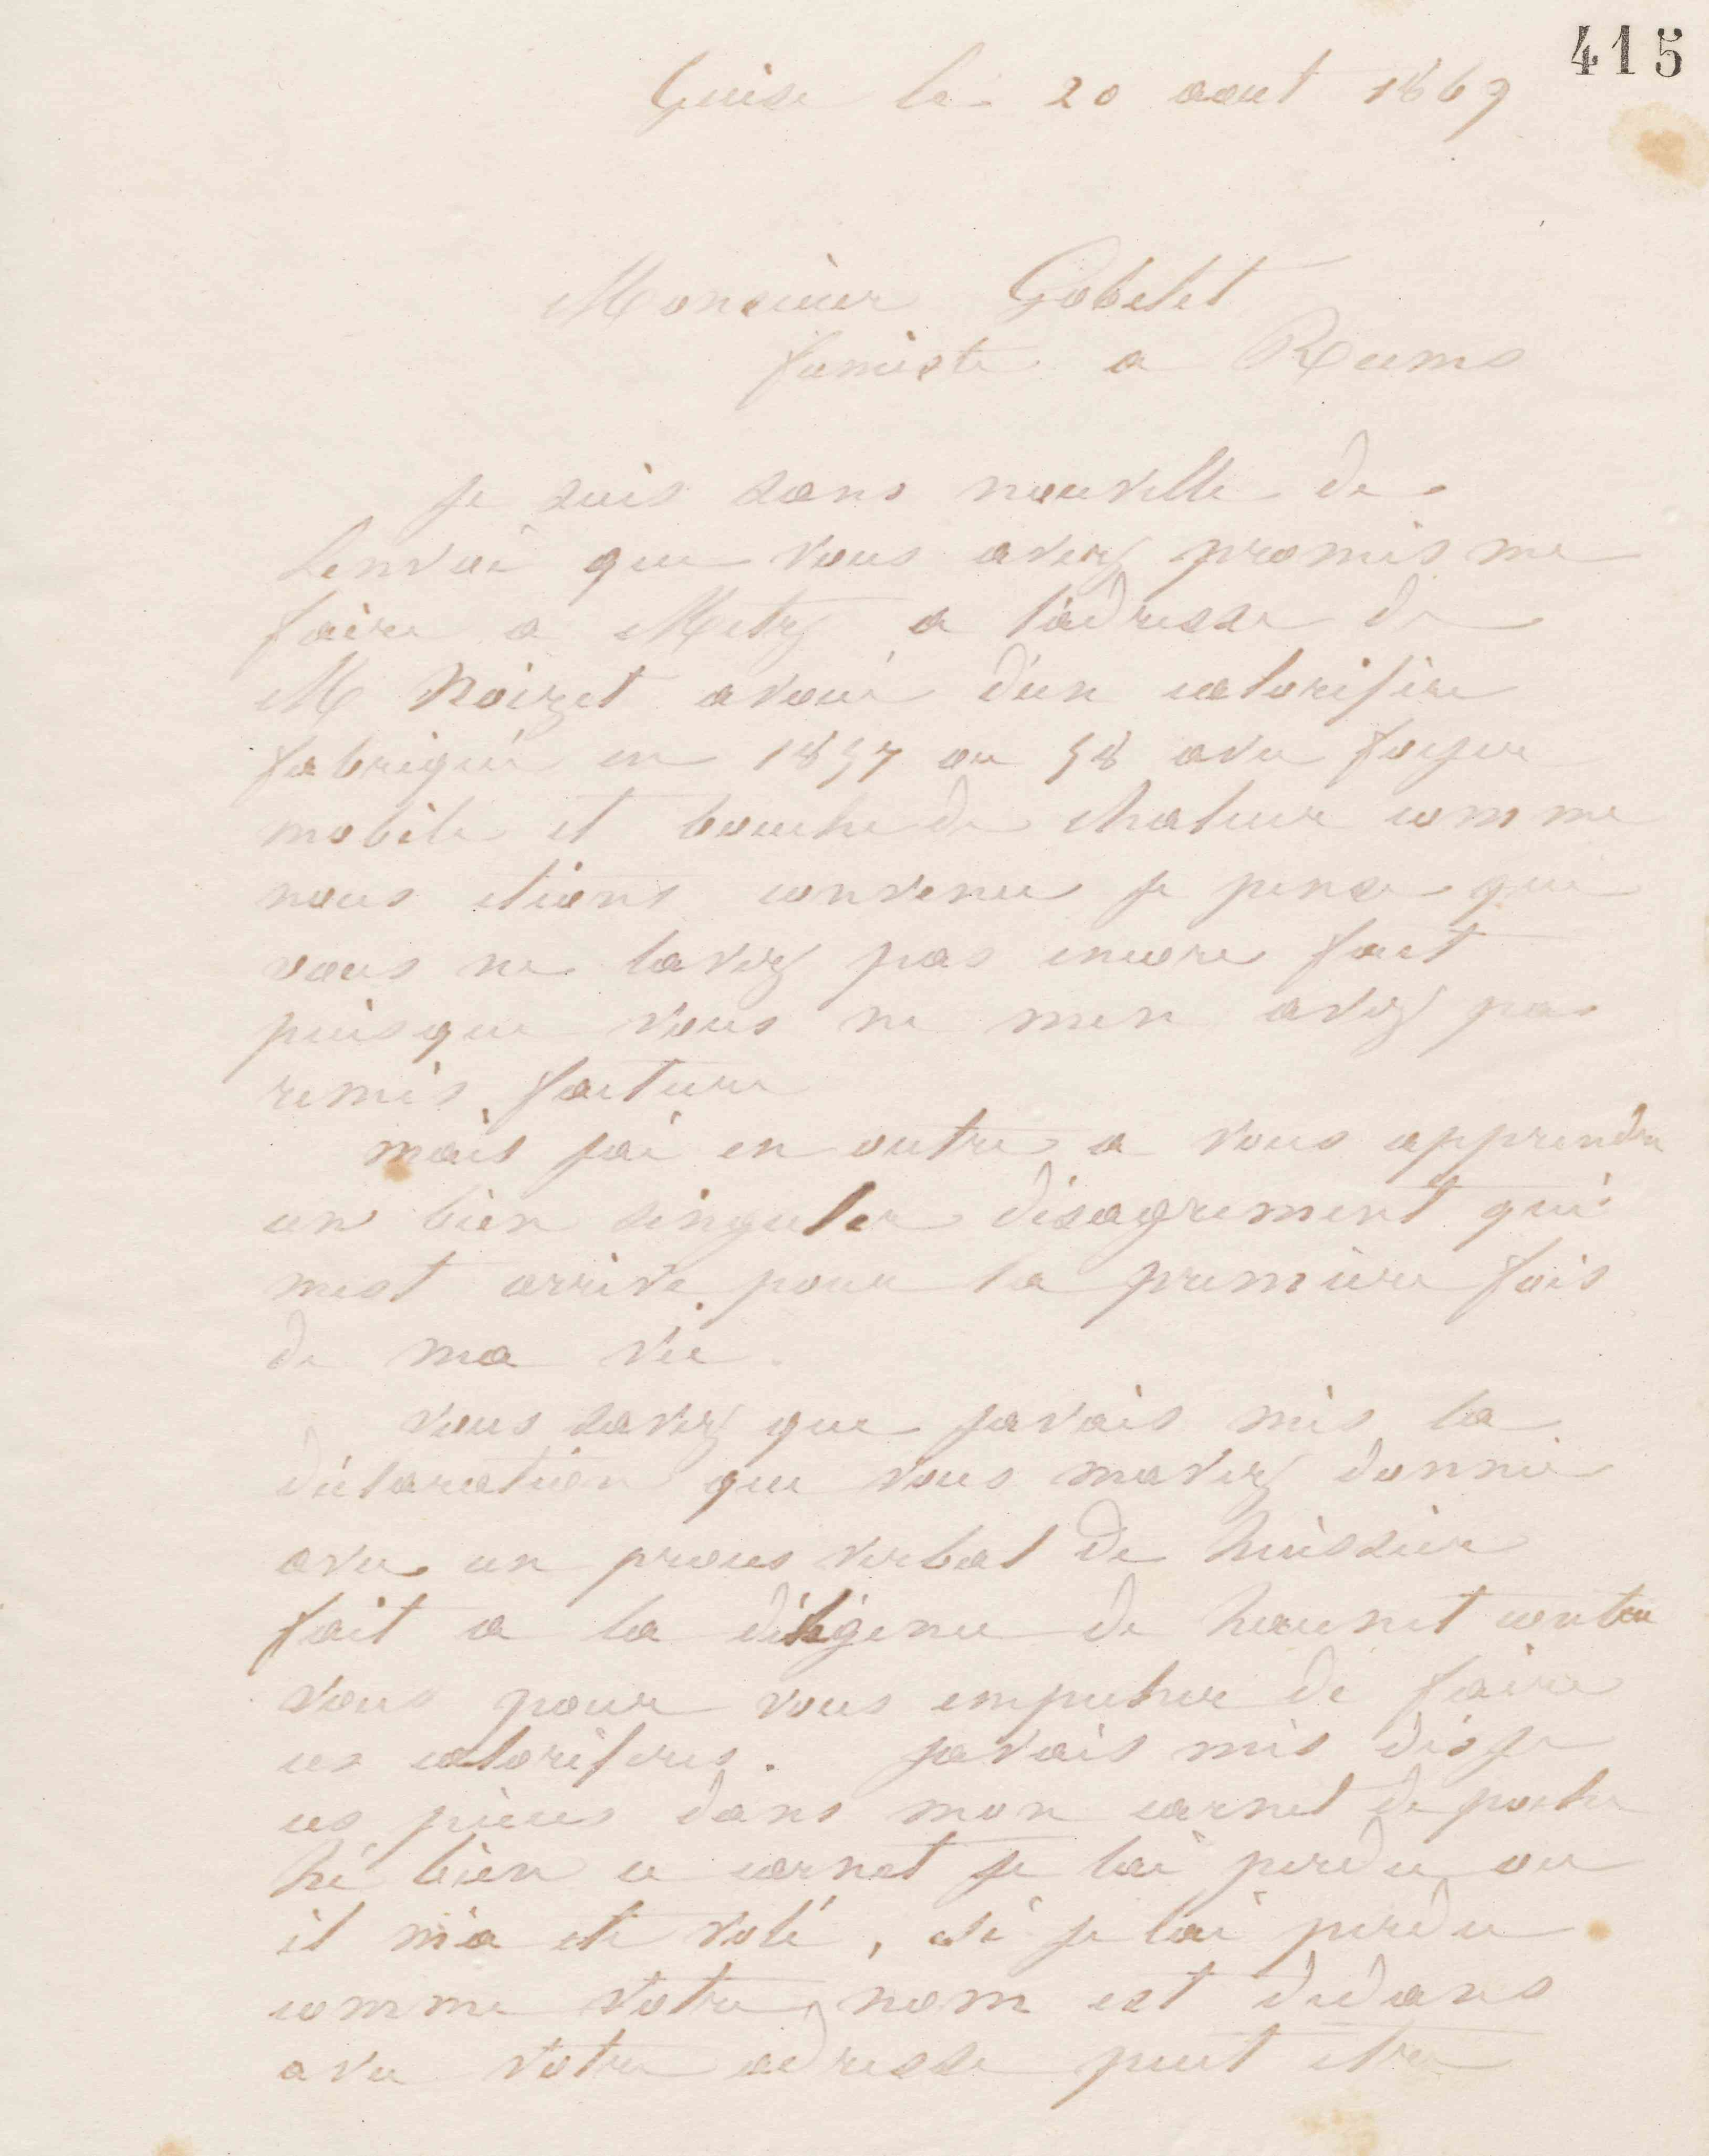 415
Guise le 20 aout 1869
Monsieur Gobelet
fumiste a Reims
Je suis sans nouvelle de
Lenvoi que vous avez promis me
faire a Metz a l'adresse de
M Noizet avoué d'un calorifère
fabriqué en 1857 ou 58 avec foyer
mobile et bouche de chaleur comme
nous etions convenu je pense que
vous ne lavez pas encore fait
puisque vous ne men avez pas
remis facture
mais jai en outre a vous apprendre
un bien singulier désagrement qui
mest arrivé pour la première fois
de ma vie.
vous savez que javais mis la
déclaration que vous mavez donnée
avec un proces verbal de huissier
fait a la diligence de heurnet contre
vous pour vous empecher de faire
ces caloriferes. javais mis dis je
ces pièces dans mon carnet de poche
hé bien ce carnet je lai perdu ou
il m'a eté volé, si je lai perdu
comme votre nom est dedans
avec votre adresse peut etre